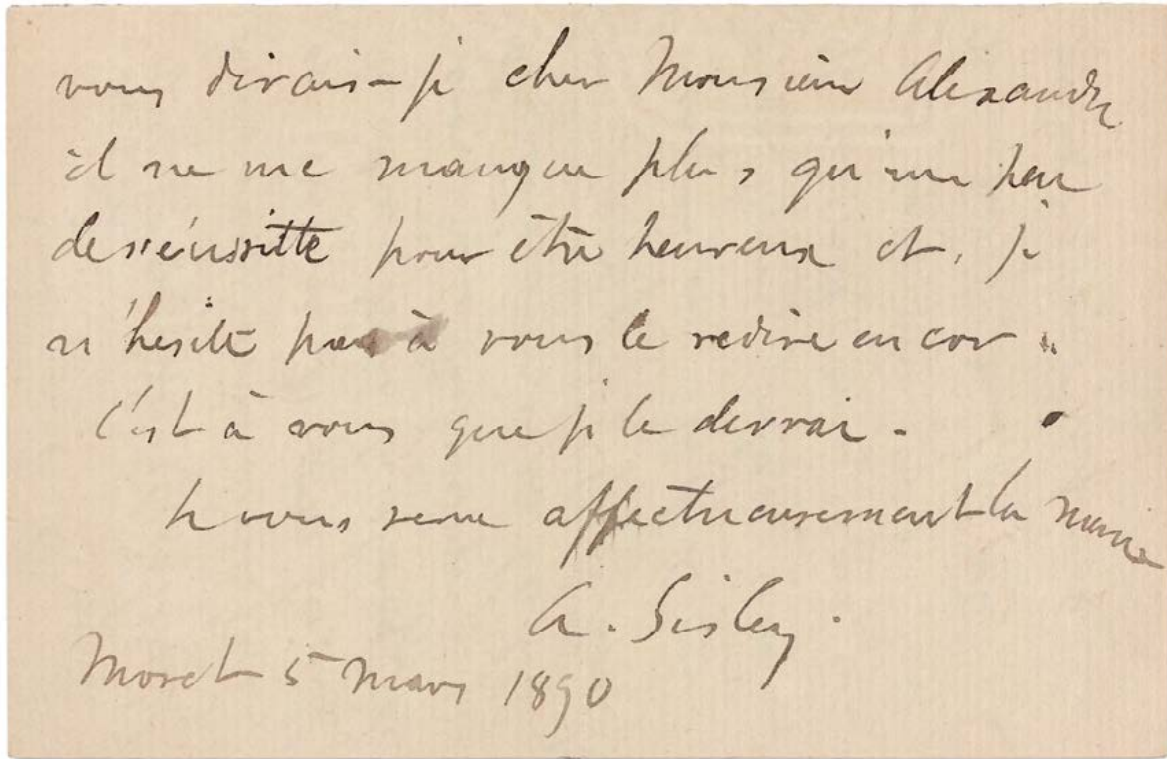 vous dirais-je cher Monsieur Alexandre
il ne me manque plus qu'un peu
de réussitte pour être heureux et, je
n'hésite pas à vous le redire encor
c'est à vous que je le devrai.
Je vous serre affectueusement la main
A. Sisley.
Moret 5 mars 1890